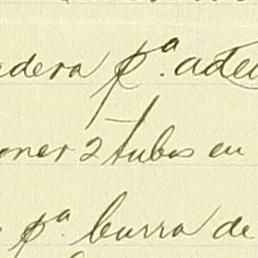 edera pª. ade
oner 2 tubos en
pª. burra de